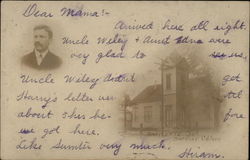 Dear Mama!-
Arrived here all right.
Uncle Wiley & Aunt Edna were
very glad to see us.
Uncle Wiley didn't get
Harry's letter
about 5 hrs be fore
we got here.
Like Sumter very much.
Hiram.